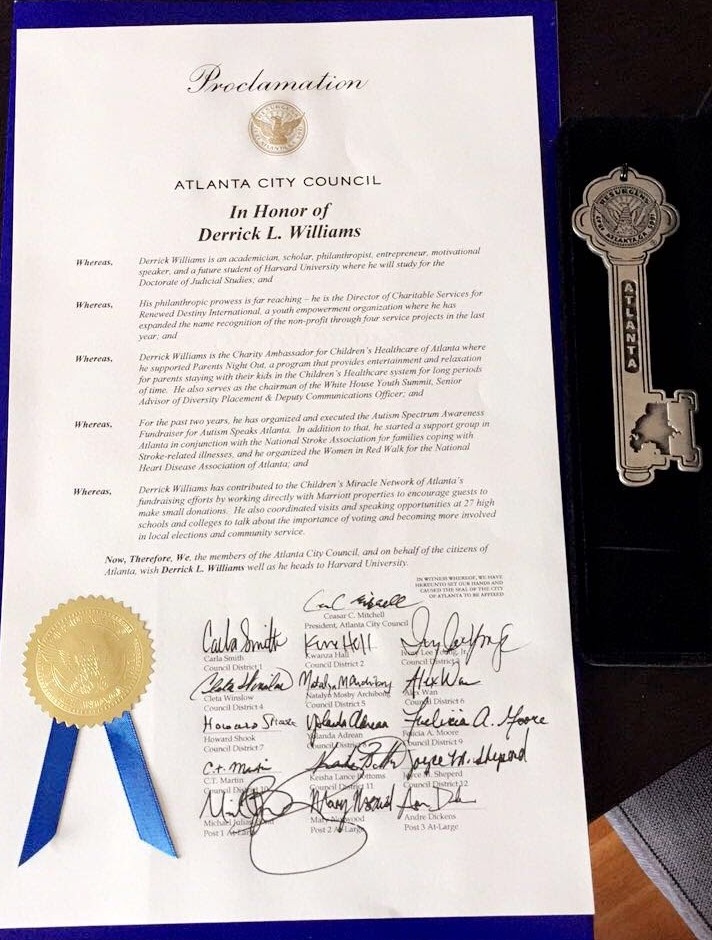 Proclamation
ATLANTA CITY COUNCIL
In Honor of
Derrick L. Williams
Whereas, Derrick Williams is an academician, scholar, philanthropist, entrepreneur, motivational
speaker, and a future student of Harvard University where he will study for the
Doctorate of Judicial Studies; and
Whereas, His philanthropic prowess is far reaching – he is the Director of Charitable Services for
Renewed Destiny International, a youth empowerment organization where he has
expanded the name recognition of the non-profit through four service projects in the last
year; and
Whereas, Derrick Williams is the Charity Ambassador for Children's Healthcare of Atlanta where
he supported Parents Night Out, a program that provides entertainment and relaxation
for parents staying with their kids in the Children's Healthcare system for long periods
of time. He also serves as the chairman of the White House Youth Summit, Senior
Advisor of Diversity Placement & Deputy Communications Officer; and
Whereas, For the past two years, he has organized and executed the Autism Spectrum Awareness
Fundraiser for Autism Speaks Atlanta. In addition to that, he started a support group in
Atlanta in conjunction with the National Stroke Association for families coping with
Stroke-related illnesses, and he organized the Women in Red Walk for the National
Heart Disease Association of Atlanta; and
Whereas, Derrick Williams has contributed to the Children's Miracle Network of Atlanta's
fundraising efforts by working directly with Marriott properties to encourage guests to
make small donations. He also coordinated visits and speaking opportunities at 27 high
schools and colleges to talk about the importance of voting and becoming more involved
in local elections and community service.
Now, Therefore, We, the members of the Atlanta City Council, and on behalf of the citizens of
Atlanta, wish Derrick L. Williams well as he heads to Harvard University.
IN WITNESS WHEREOF, WE HAVE
HEREUNTO SET OUR HANDS AND
CAUSED THE SEAL OF THE CITY
OF ATLANTA TO BE AFFIXED
Ceasar C. Mitchell
President, Atlanta City Council
Carla Smith
Carla Smith Kwanza Hall Ivory Lee Young, Jr.
Council District 1 Council District 2 Council District 3
Cleta Winslow Natalyn M Archibong Alex Wan
Cleta Winslow Natalyn Mosby Archibong Alex Wan
Council District 4 Council District 5 Council District 6
Howard Shook Yolanda Adrean Felicia A. Moore
Howard Shook Yolanda Adrean Felicia A. Moore
Council District 7 Council District Council District 9
C.T. Martin Joyce M. Sheperd
C.T. Martin Keisha Lance Bottoms Joyce M. Sheperd
Council District 10 Council District 11 Council District 12
Mary Norwood
Michael Julian Bond Mary Norwood Andre Dickens
Post 1 At-Large Post 2 At-Large Post 3 At-Large
RESURGENS
ATLANTA, GA.
ATLANTA